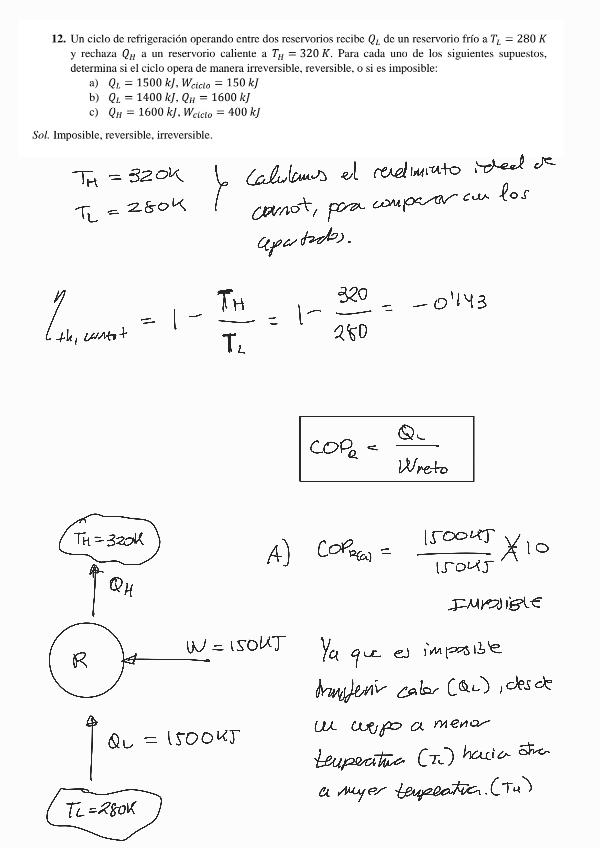 12. Un ciclo de refrigeración operando entre dos reservorios recibe Q_L de un reservorio frío a T_L = 280 K
y rechaza Q_H a un reservorio caliente a T_H = 320 K. Para cada uno de los siguientes supuestos,
determina si el ciclo opera de manera irreversible, reversible, o si es imposible:
a) Q_L = 1500 kJ, W_ciclo = 150 kJ
b) Q_L = 1400 kJ, Q_H = 1600 kJ
c) Q_H = 1600 kJ, W_ciclo = 400 kJ
Sol. Imposible, reversible, irreversible.
T_H = 320K
T_L = 280K
Calculamos el rendimiento ideal de
carnot, para comparar con los
apartados.
η_th, carnot = 1 - T_H/T_L = 1 - 320/280 = -0'143
COP_R = Q_L / W neto
T_H = 320K
Q_H
R
W = 150KJ
Q_L = 1500KJ
T_L = 280K
A) COP_R(A) = 1500KJ / 150KJ 10
IMPOSIBLE
Ya que es imposible
transferir calor (Q_L), desde
un cuerpo a menor
temperatura (T_L) hacia otro
a mayor temperatura. (T_H)